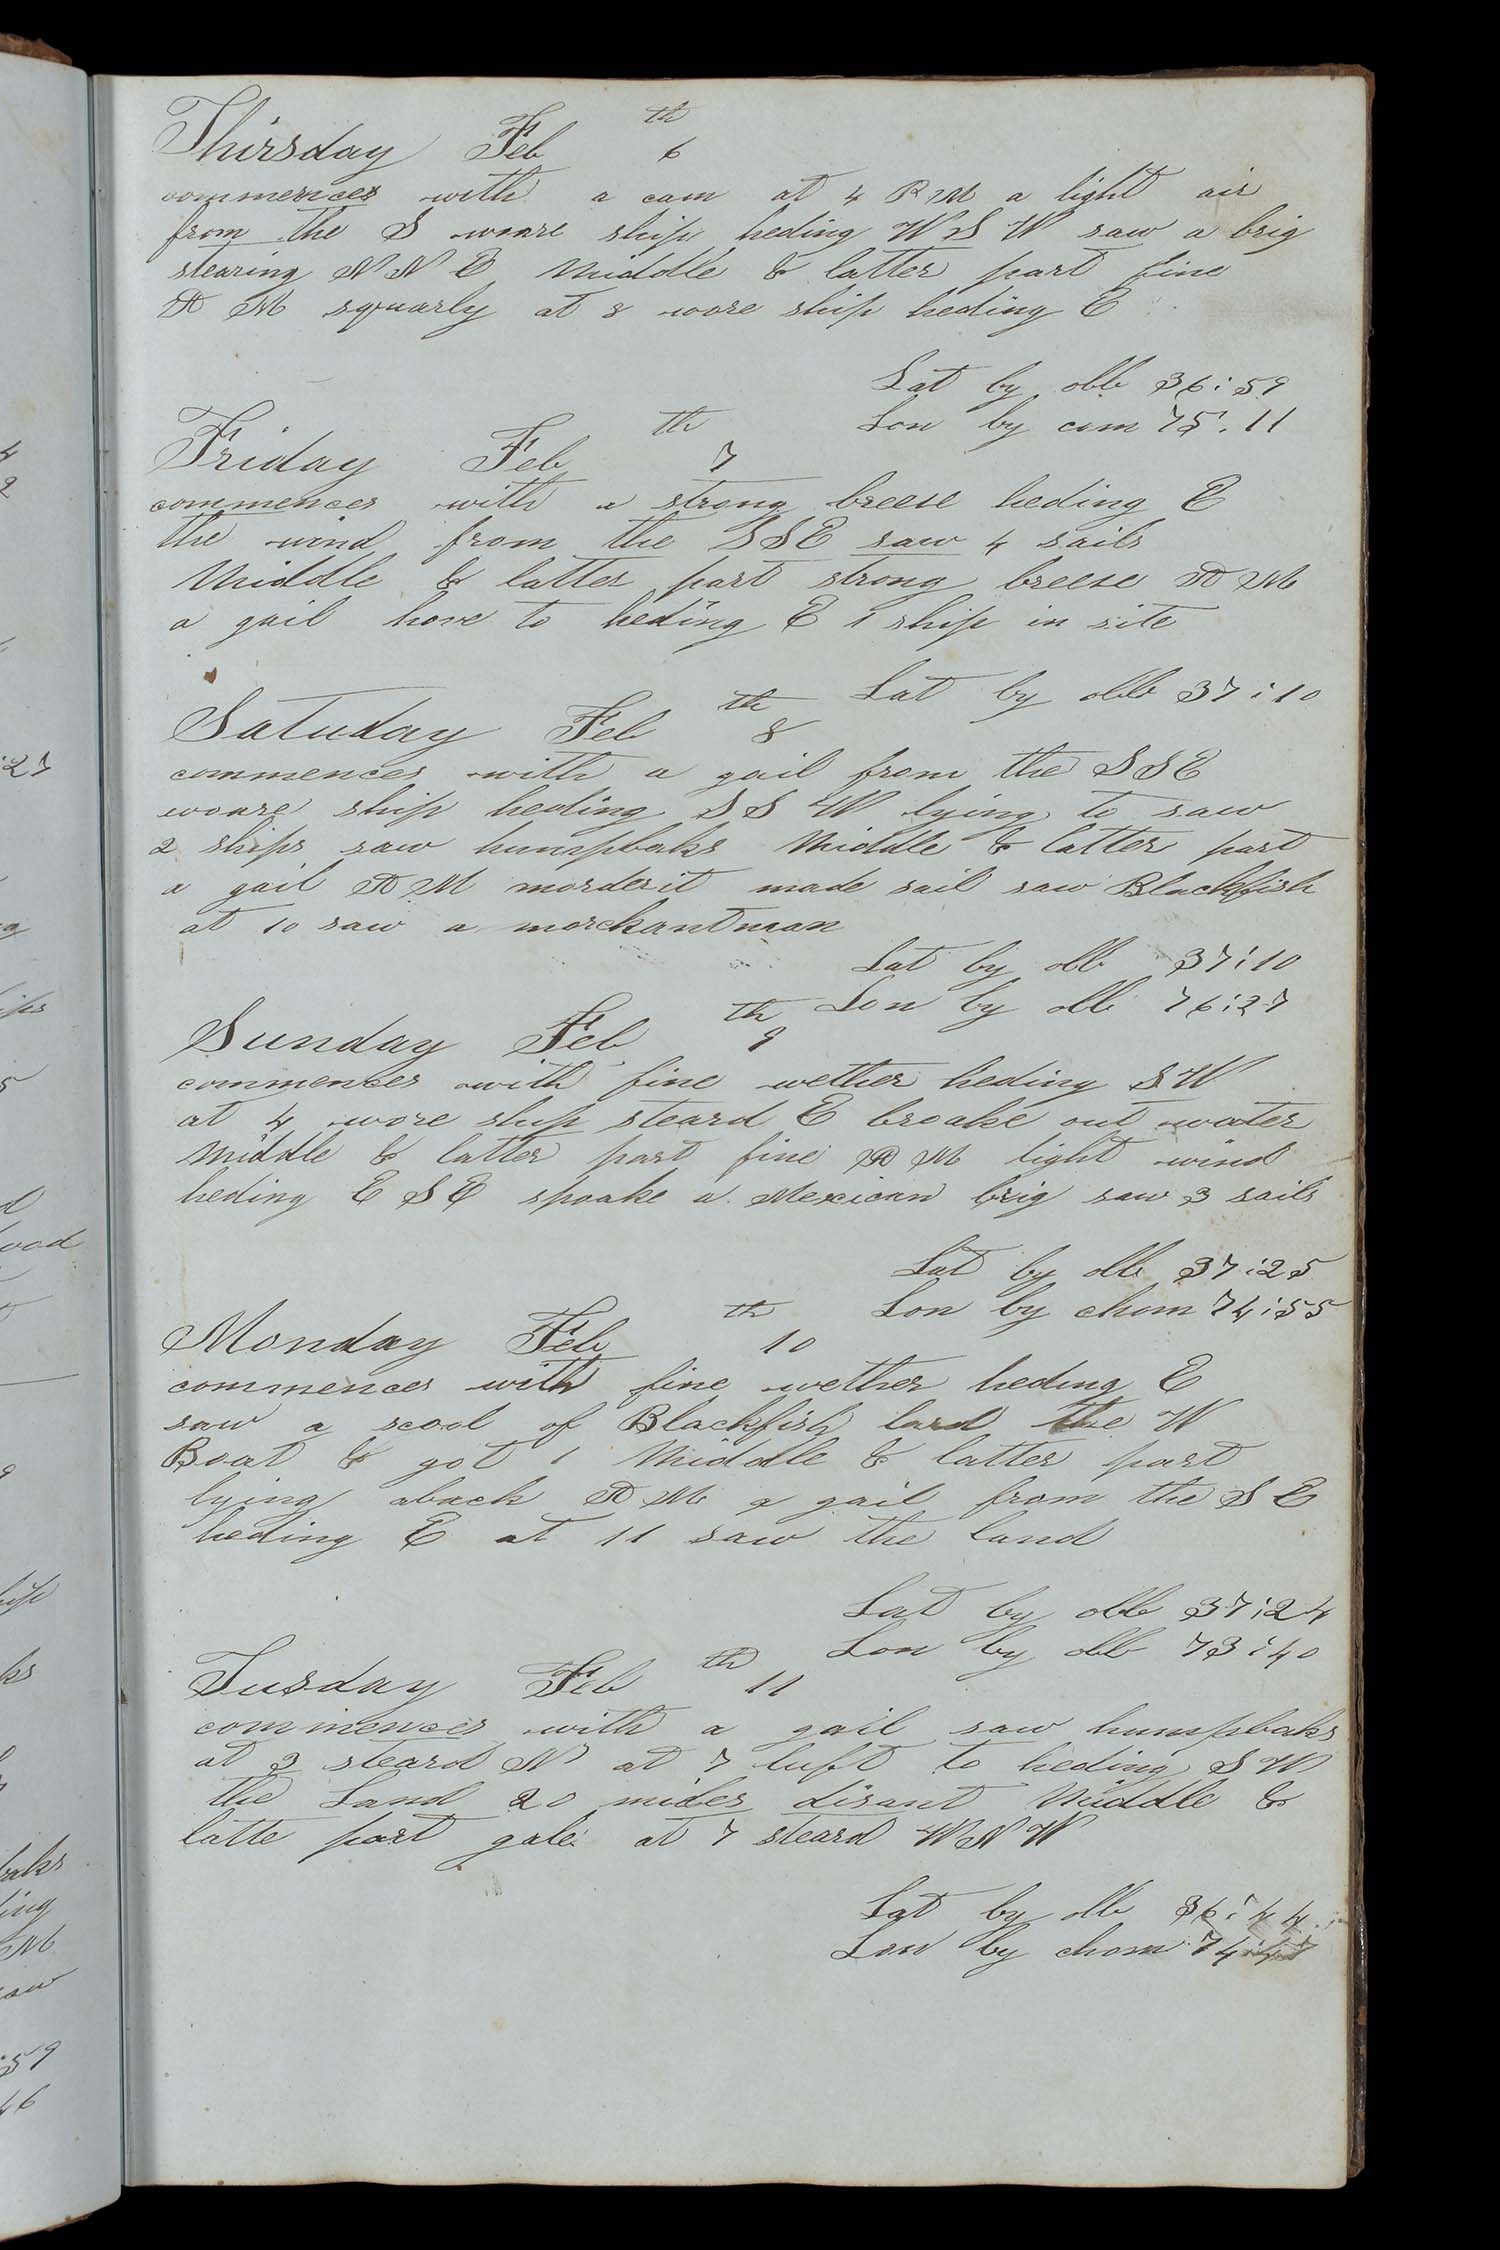 Thirsday Feb 6th
commences with a cam at 4 P M a light air
from the S woare ship heding W S W saw a brig
stearing N N E Middle & latter part fine
A M squarly at 8 wore ship heding E
Lat by obb 36:59
Lon by com 75:11
Friday Feb 7th
commences with a strong breese heding E
the wind from the SSE saw 4 sails
Middle & latter part strong breese A M
a gail hove to heding E 1 ship in site
Lat by obb 37:10
Satuday Feb 8th
commences with a gail from the SSE
woare ship heding S S W lying to saw
2 ships saw humpbaks Middle & latter part
a gail A M morderit made sail saw Blackfish
at 10 saw a morchantman
Lat by obb 37:10
Lon by obb 76:27
Sunday Feb 9th
commences with fine wether heding SW
at 4 wore ship steard E broake out water
Middle & latter part fine A M light wind
heding E S E spoake a Mexican brig saw 3 sails
Lat by obb 37:25
Lon by chom 74:55
Monday Feb 10th
commences with fine wether heding E
saw a scool of Blackfish lard the W
Boat & got 1 Middle & latter part
lying aback A M a gail from the S E
heding E at 11 saw the land
Lat by obb 37:24
Lon by obb 73:40
Tusday Feb 11th
commences with a gail saw humpbaks
at 3 steard N at 7 luft to heding S W
the Land 20 miles disant Middle &
latte part gale at 7 steard W N W
Lat by obb 36:44
Lon by chom 74:47
:27
ips
5
ood
9
ship
ks
baks
ing
M
saw
:59
46